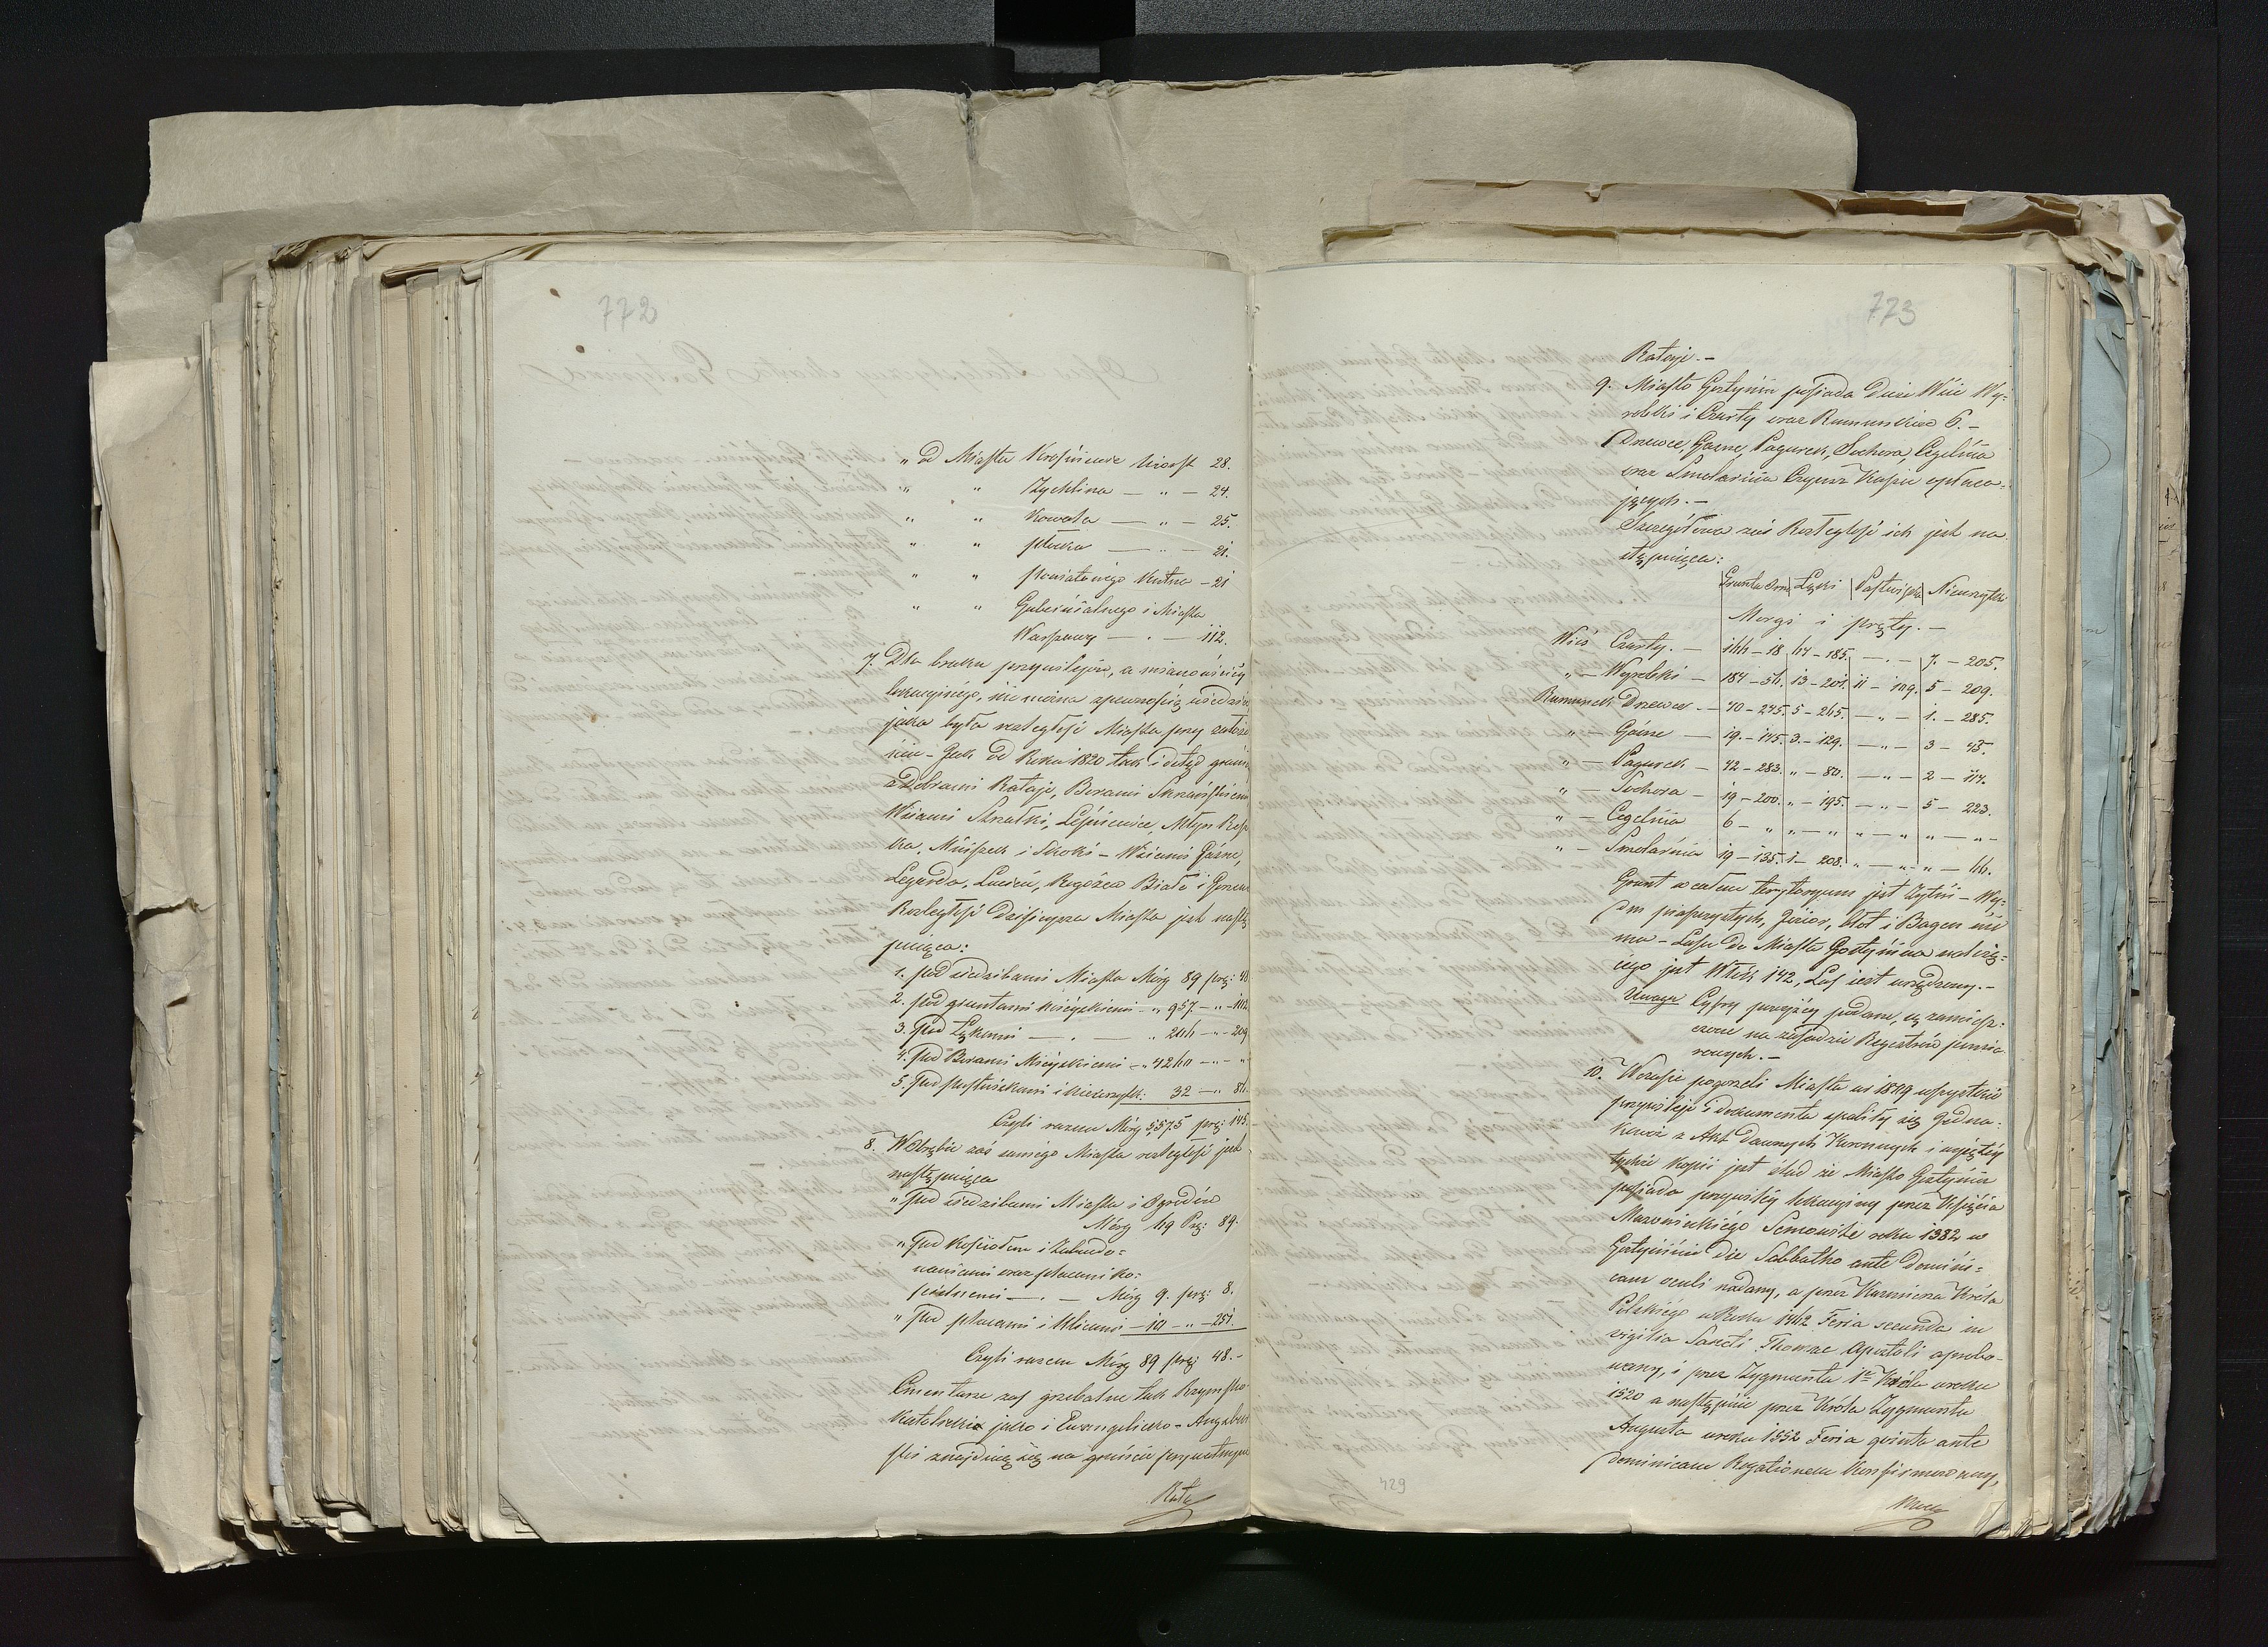 772
" od Miasta Krośniewic wiorst 28.
" " Żychlina — " — 24.
" " Kowala — " — 25.
" " Płocka — " — 21.
" " Powiatowego Kutna — 21
" " Gubernialnego i Miasta
Warszawy — " — 112.
7. Dla braku przywilejów, a mianowicie
lokacyjnego, nie można z pewnością wiedzieć,
jaka była rozległość Miasta przy założe
niu – Jak od Roku 1820 tak i dotąd grani
z Dobrami Rataje, Borami Skrzańskiemi
Wsiami Strzałki, Leśniewice, Młyn
Miński i Skoki – Wsiami Gaśne,
Legarda, Lucień, Rogożew Białe i
Rozległość dzisiejsza Miasta jest nastę
pująca:
1. pod siedzibami Miasta Mórg 89 pręt: 48
2. pod gruntami miejskiemi – " 957 – " – 102
3. pod Łąkami — . — " 244 – " – 209
4. pod Borami Miejskiemi – " 4240 – " – "
5. pod pastwiskami i nieużytk: 32 – " 84.
Czyli razem Mórg 5,575 pręt: 143.
8. W obrębie zaś samego Miasta rozległość jest
następująca
" pod siedzibami Miasta i Ogrodów
Mórg 49 Pręt: 89.
" pod Kościołem i Zabudo=
waniami oraz placami ko:
ścielnemi — . — Mórg 9. pręt: 8.
" pod placami i Ulicami — " — 251.
Czyli razem Mórg 89 pręt 48.–
Cmentarze zaś grzebalne tak Rzymsko
Katolickie jako i Ewangelicko-Augsbur
skie znajdują się na gruncie prywatnym
Rataj
773
Rataje.–
9. Miasto Gostynin posiada Dwie Wsie Wy=
robki i Czarty oraz Rumunków 6.–
Drzewce, Gaśne, Pagurek, Sochora, Cegelnia
oraz Smolarnia Czynsz Kasie opłaca=
jących.–
Szczegółowa zaś Rozległość ich jest na
stępująca:
Grunta Orne Łąki Pastwiska Nieużytki
Morgi i pręty.–
Wieś Czarty. — 144 – 18 64 – 185. — . — 7. – 205.
" — Wyrobki — 184 – 54. 13 – 201. 11 – 109. 5 – 209.
Rumunek Drzewce — 40 – 245. 5 – 265. — " — 1. – 285.
" — Gaśne — 19. – 145. 3. – 129. — " — 3 – 43.
" — Pagurek — 42 – 283. " – 80. — " — 2 – 114.
" — Sochora — 19 – 200. " – 195. — " — 5 – 223.
" — Cegelnia 6 – " " – " " – " " – " –
" — Smolarnia 19 – 135. 1 – 208. " – " " – 44.
Grunt w całem terytoryum jest żytni – Wy:
dm piaszczystych, Jezior, błot i Bagen nie
ma – Lasu do Miasta Gostynina należą=
cego jest Włók 142, Las jest urządzony.–
Uwaga Cyfry powyżej podane, są zamiesz:
czone na zasadzie Regestrów pomia
rowych.–
10. W czasie pogorzeli Miasta w 1809 wszystkie
przywileje i dokumenta spaliły się Jedna=
kowoż z Akt dawnych Koronnych i wyjętej
tychże kopii jest ślad że Miasto Gostynin
posiada przywilej lokacyjny przez Księcia
Mazowieckiego Semowite roku 1382 w
Gostyninie die Sabbatho ante Domini=
cam oculi nadany, a przez Kazimierza Króla
Polskiego w Roku 1462 Feria secunda in
vigilia Sancti Thomae Apostoli aprobo=
wany, i przez Zygmunta 1go Króla w roku
1520 a następnie przez Króla Zygmunta
Augusta w roku 1552 Feria quinta ante
Dominicam Rogationem Konfirmowany,
429